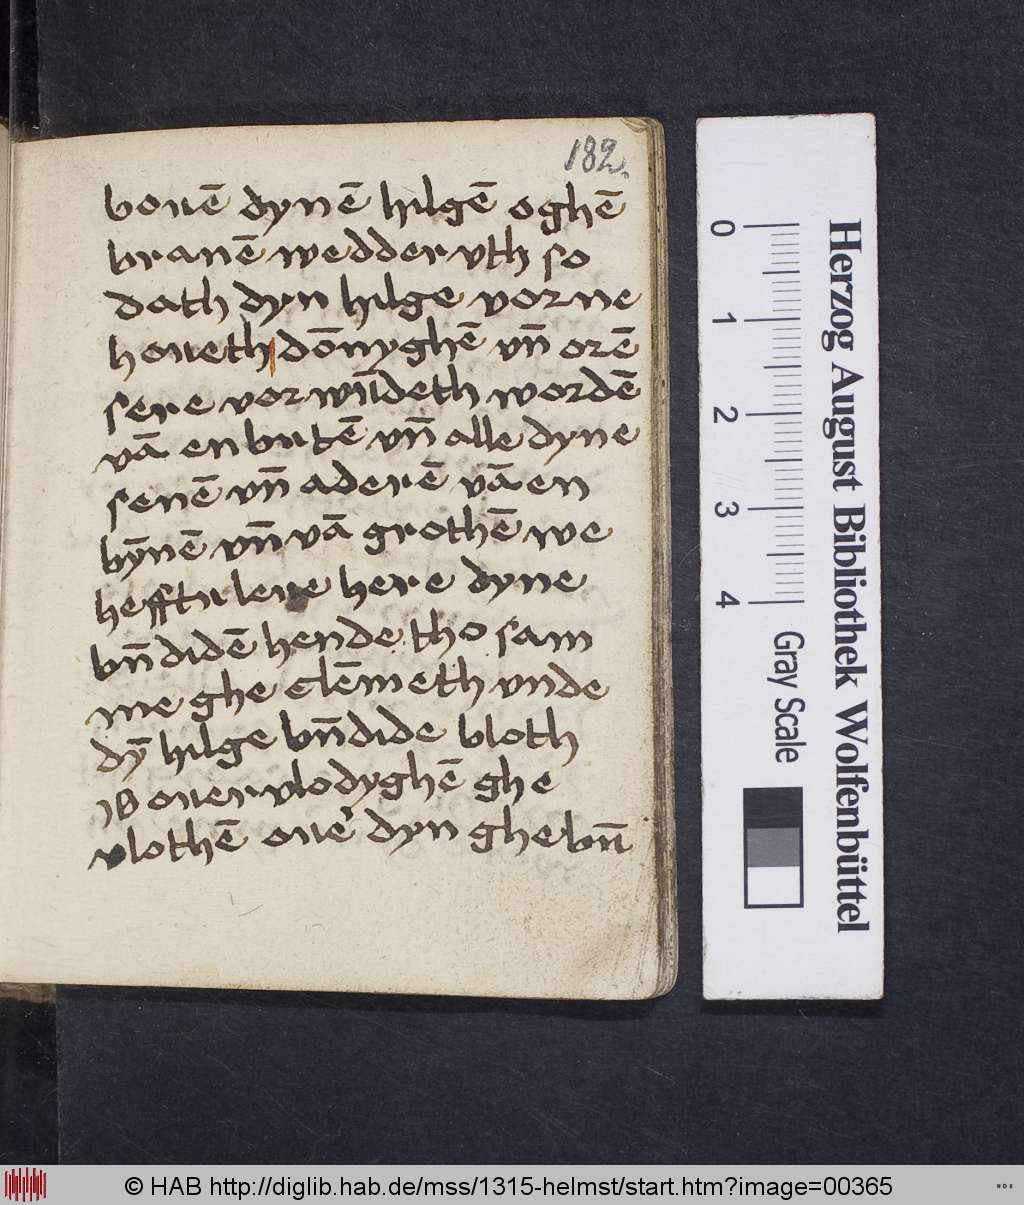 182.
bouē dynē hilgē oghē
branē wedder vth so
dath dyn hilge vorne
houeth dōnyghē vn̄ orē
sere vor wn̄deth wordē
vā en butē vn̄ alle dyne
senē vn̄ aderē vā en
bȳnē vn̄ vā grothē we
hefftu leue here dyne
bn̄didē hende tho sam
me ghe clēmeth vnde
dȳ hilge bn̄dide bloth
is ouer vlodyghē ghe
vlothē oue' dyn ghe bn̄
Herzog August Bibliothek Wolfenbüttel
0
1
2
3
4
Gray Scale
© HAB http://diglib.hab.de/mss/1315-helmst/start.htm?image=00365